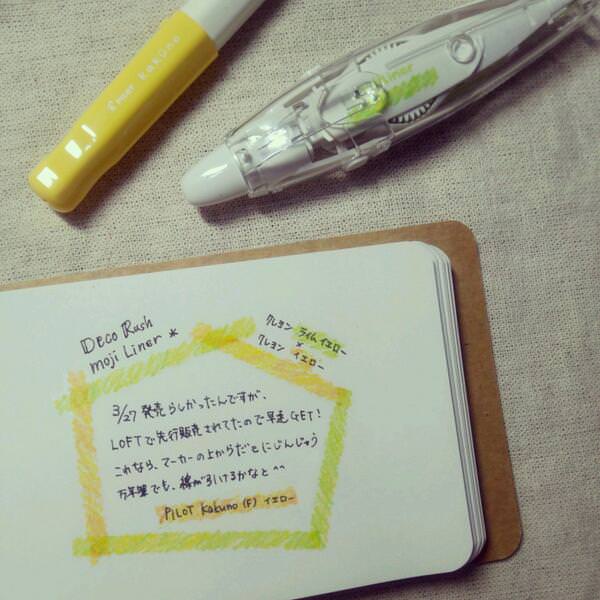 PILOT kaküno
Liner
Deco Rush
moji Liner *
クレヨン ライムイエロー
×
クレヨン イエロー
3/27 発売らしかったんですが、
LOFTで先行販売されてたので早速GET!
これなら、マーカーの上からだとにじんじゃう
万年筆でも、線が引けるかなと^^
PILOT Kakuno (F) イエロー